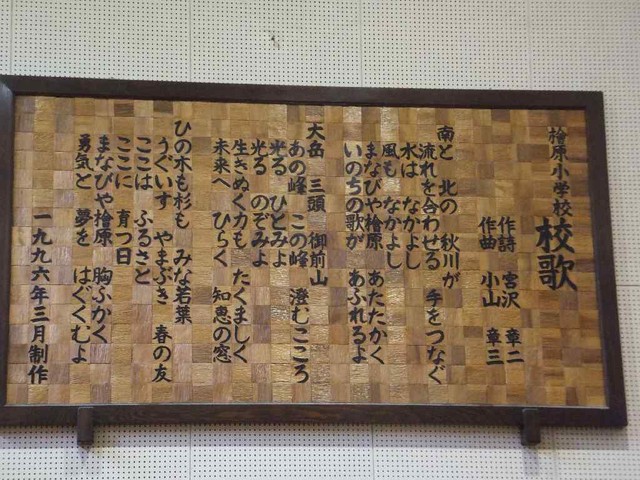 檜原小学校 校歌
作詩 宮沢 章二
作曲 小山 章三
南と 北の 秋川が
流れを合わせる 手をつなぐ
水は なかよし
風も なかよし
まなびや檜原 あたたかく
いのちの歌が あふれるよ
大岳 三頭 御前山
あの峰 この峰 澄むこころ
光る ひとみよ
光る のぞみよ
生きぬく力も たくましく
未来へ ひらく 知恵の窓
ひの木も杉も みな若葉
うぐいす やまぶき 春の友
ここは ふるさと
ここに 育つ日
まなびや檜原 胸ふかく
勇気と 夢を はぐくむよ
一九九六年三月制作